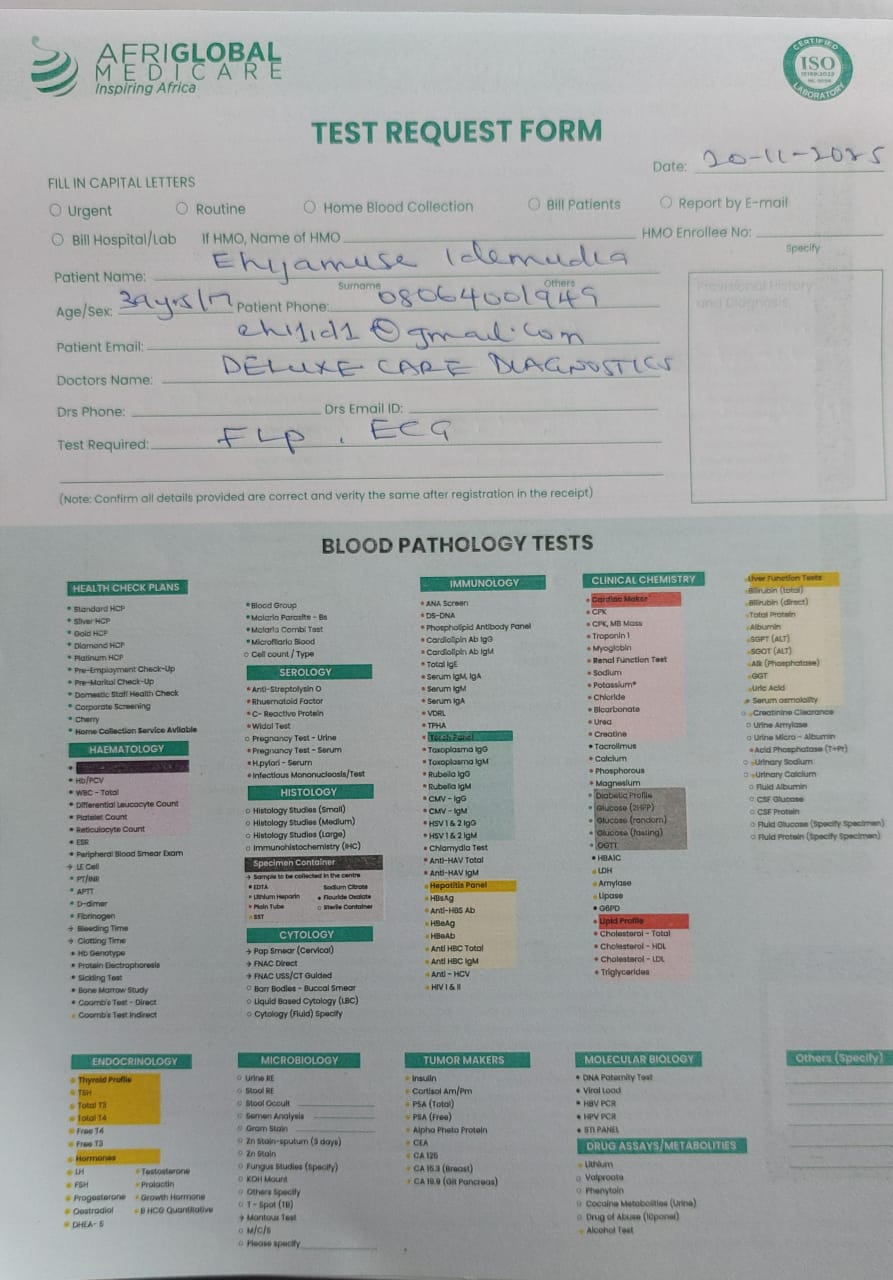 AFRIGLOBAL
MEDICARE
Inspiring Africa
CERTIFIED
ISO
LABORATORY
TEST REQUEST FORM
Date: 20-11-2025
FILL IN CAPITAL LETTERS
Urgent Routine Home Blood Collection Bill Patients Report by E-mail
Bill Hospital/Lab If HMO, Name of HMO HMO Enrollee No:
Specify
Patient Name: Ehyamuse Idemudia
Surname Others
Age/Sex: Patient Phone: 08064001949
Patient Email: eh11id1@gmail.com
Doctors Name: DELUXE CARE DIAGNOSTICS
Drs Phone: Drs Email ID:
Test Required: FLP, ECG
(Note: Confirm all details provided are correct and verity the same after registration in the receipt)
Provisional History
and Diagnosis
BLOOD PATHOLOGY TESTS
HEALTH CHECK PLANS
Standard HCP
Silver HCP
Gold HCP
Diamond HCP
Platinum HCP
Pre-Employment Check-Up
Pre-Marital Check-Up
Domestic Staff Health Check
Corporate Screening
Cherry
Home Collection Service Avilable
HAEMATOLOGY
Hb/PCV
WBC - Total
Differential Leucocyte Count
Platelet Count
Reticulocyte Count
ESR
Peripheral Blood Smear Exam
LE Cell
PT/INR
APTT
D-dimer
Fibrinogen
Bleeding Time
Clotting Time
Hb Genotype
Protein Electrophoresis
Sickling Test
Bone Marrow Study
Coomb's Test - Direct
Coomb's Test Indirect
Blood Group
Malaria Parasite - Bs
Malaria Combi Test
Microfilaria Blood
Cell count / Type
SEROLOGY
Anti-Streptolysin O
Rhuematoid Factor
C- Reactive Protein
Widal Test
Pregnancy Test - Urine
Pregnancy Test - Serum
H.pylori - Serum
Infectious Mononucleosis/Test
HISTOLOGY
Histology Studies (Small)
Histology Studies (Medium)
Histology Studies (Large)
Immunohistochemistry (IHC)
Specimen Container
Sample to be collected in the centre
EDTA Sodium Citrate
Lithium Heparin Flouride Oxalate
Plain Tube Sterile Container
SST
CYTOLOGY
Pap Smear (Cervical)
FNAC Direct
FNAC USS/CT Guided
Barr Bodies - Buccal Smear
Liquid Based Cytology (LBC)
Cytology (Fluid) Specify
IMMUNOLOGY
ANA Screen
DS-DNA
Phospholipid Antibody Panel
Cardiolipin Ab IgG
Cardiolipin Ab IgM
Total IgE
Serum IgM, IgA
Serum IgM
Serum IgA
VDRL
TPHA
Torch Panel
Toxoplasma IgG
Toxoplasma IgM
Rubella IgG
Rubella IgM
CMV - IgG
CMV - IgM
HSV 1 & 2 IgG
HSV 1 & 2 IgM
Chlamydia Test
Anti-HAV Total
Anti-HAV IgM
Hepatitis Panel
HBsAg
Anti-HBS Ab
HBeAg
HBeAb
Anti HBC Total
Anti HBC IgM
Anti - HCV
HIV I & II
CLINICAL CHEMISTRY
Cardiac Maker
CPK
CPK, MB Mass
Troponin 1
Myoglobin
Renal Function Test
Sodium
Potassium*
Chloride
Bicarbonate
Urea
Creatine
Tacrolimus
Calcium
Phosphorous
Magnesium
Diabetic Profile
Glucose (2HPP)
Glucose (random)
Glucose (fasting)
OGTT
HBAIC
LDH
Amylase
Lipase
G6PD
Lipid Profile
Cholesterol - Total
Cholesterol - HDL
Cholesterol - LDL
Triglycerides
Liver Function Tests
Bilirubin (total)
Bilirubin (direct)
Total Protein
Albumin
SGPT (ALT)
SGOT (ALT)
Alk (Phosphatase)
GGT
Uric Acid
Serum osmolality
Creatinine Clearance
Urine Amylase
Urine Micro - Albumin
Acid Phosphatase (T+Pr)
Urinary Sodium
Urinary Calcium
Fluid Albumin
CSF Glucose
CSF Protein
Fluid Glucose (Specify Specimen)
Fluid Protein (Specify Specimen)
ENDOCRINOLOGY
Thyroid Profile
TSH
Total T3
Total T4
Free T4
Free T3
Hormones
LH Testosterone
FSH Prolactin
Progesterone Growth Hormone
Oestradiol B HCG Quantitative
DHEA- S
MICROBIOLOGY
Urine RE
Stool RE
Stool Occult
Semen Analysis
Gram Stain
Zn Stain-sputum (3 days)
Zn Stain
Fungus Studies (Specify)
KOH Mount
Others Specify
T - Spot (TB)
Mantoux Test
M/C/S
Please specify
TUMOR MAKERS
Insulin
Cortisol Am/Pm
PSA (Total)
PSA (Free)
Alpha Pheto Protein
CEA
CA 125
CA 15.3 (Breast)
CA 19.9 (GIt Pancreas)
MOLECULAR BIOLOGY
DNA Paternity Test
Viral Load
HBV PCR
HPV PCR
STI PANEL
DRUG ASSAYS/METABOLITIES
Lithium
Valproate
Phenytoin
Cocaine Metabolities (Urine)
Drug of Abuse (10panel)
Alcohol Test
Others (Specify)